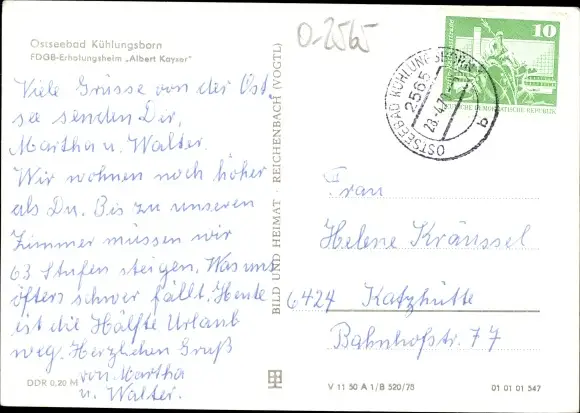 O-2565
Ostseebad Kühlungsborn
FDGB-Erholungsheim „Albert Kayser"
Viele Grüsse von der Ost
see senden Dir,
Martha u. Walter.
Wir wohnen noch höher
als Du. Bis zu unseren
Zimmer müssen wir
63 Stufen steigen. Was uns
öfters schwer fällt. Heute
ist die Hälfte Urlaub
weg. Herzlichen Gruß
von Martha
u. Walter.
DDR 0,20 M
BILD UND HEIMAT · REICHENBACH (VOGTL)
V 11 50 A 1/B 520/75
01 01 01 547
10
DEUTSCHE DEMOKRATISCHE REPUBLIK
OSTSEEBAD KÜHLUNGSBORN
2565
b
Frau
Helene Kräussel
6424 Katzhütte
Bahnhofstr. 77